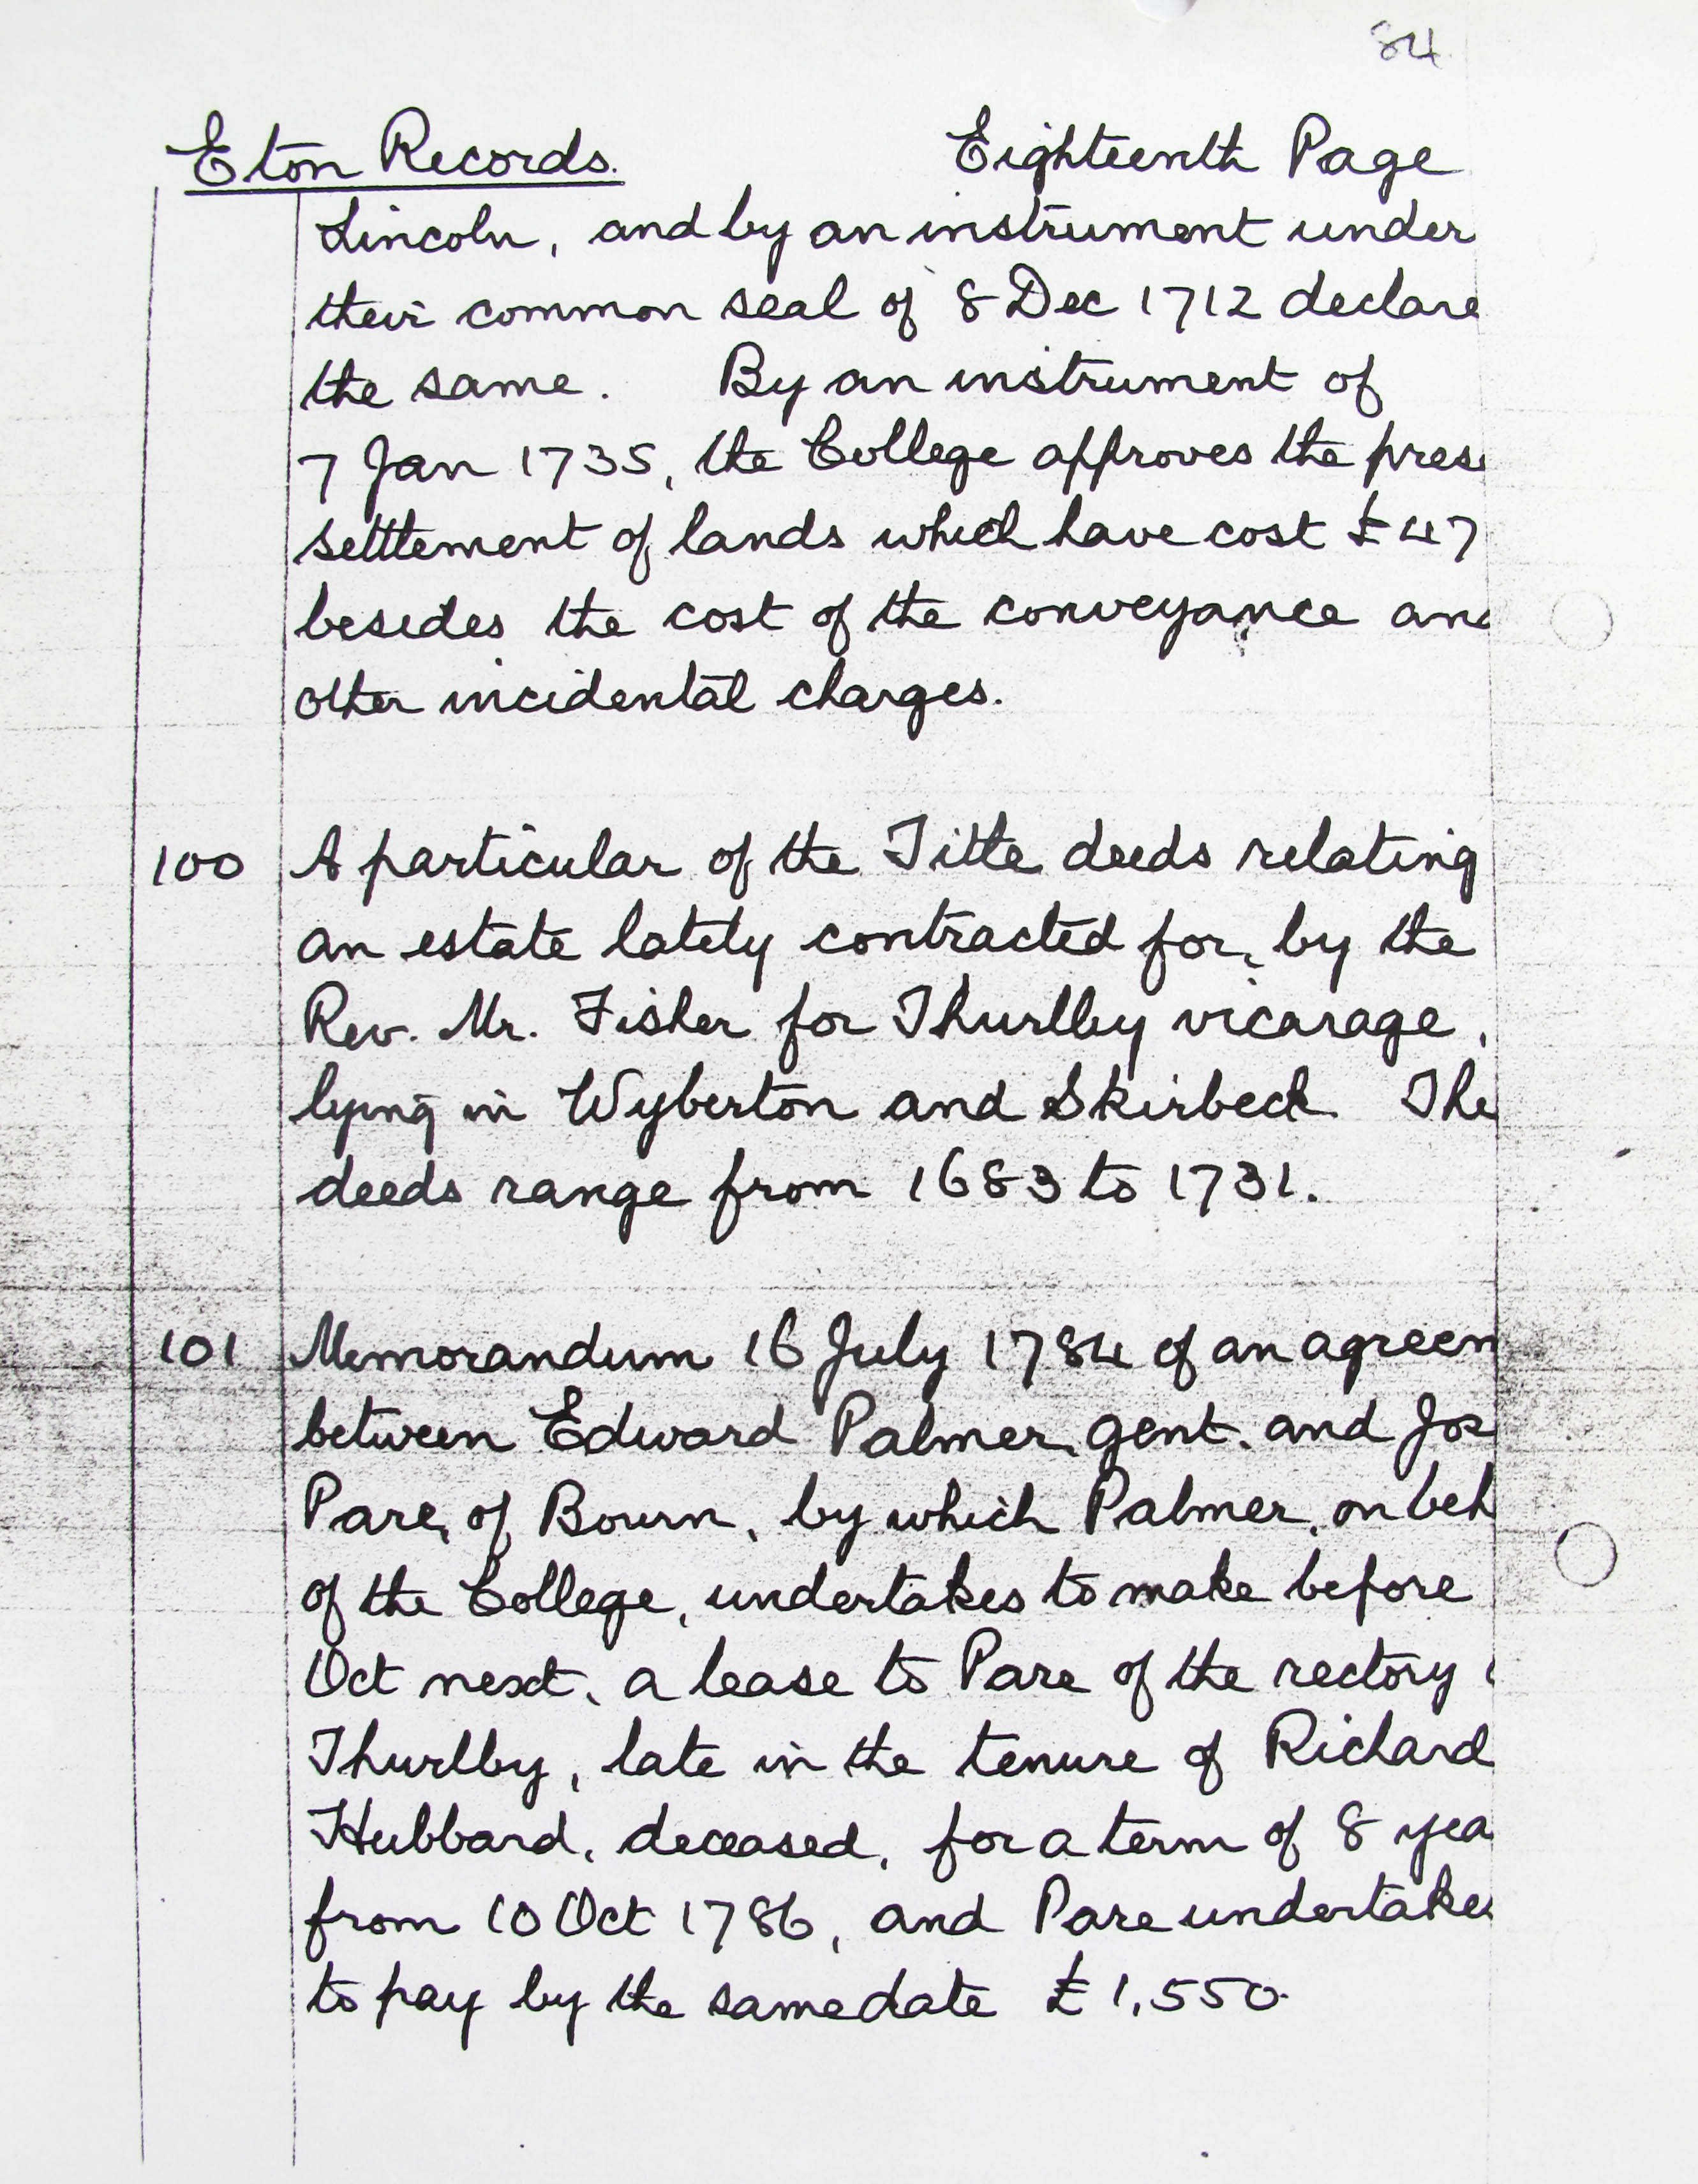 84
Eton Records. Eighteenth Page
Lincoln, and by an instrument under
their common seal of 8 Dec 1712 declare
the same. By an instrument of
7 Jan 1735, the College approves the pres
settlement of lands which have cost £47
besides the cost of the conveyance and
other incidental charges.
100 A particular of the Title deeds relating
an estate lately contracted for, by the
Rev. Mr. Fisher for Thurlby vicarage,
lying in Wyberton and Skirbeck. The
deeds range from 1683 to 1731.
101 Memorandum 16 July 1784 of an agreem
between Edward Palmer, gent. and Jos
Pare, of Bourn, by which Palmer, on beh
of the College, undertakes to make before
Oct next, a lease to Pare of the rectory
Thurlby, late in the tenure of Richard
Hubbard, deceased, for a term of 8 yea
from 10 Oct 1786, and Pare undertakes
to pay by the same date £1,550.